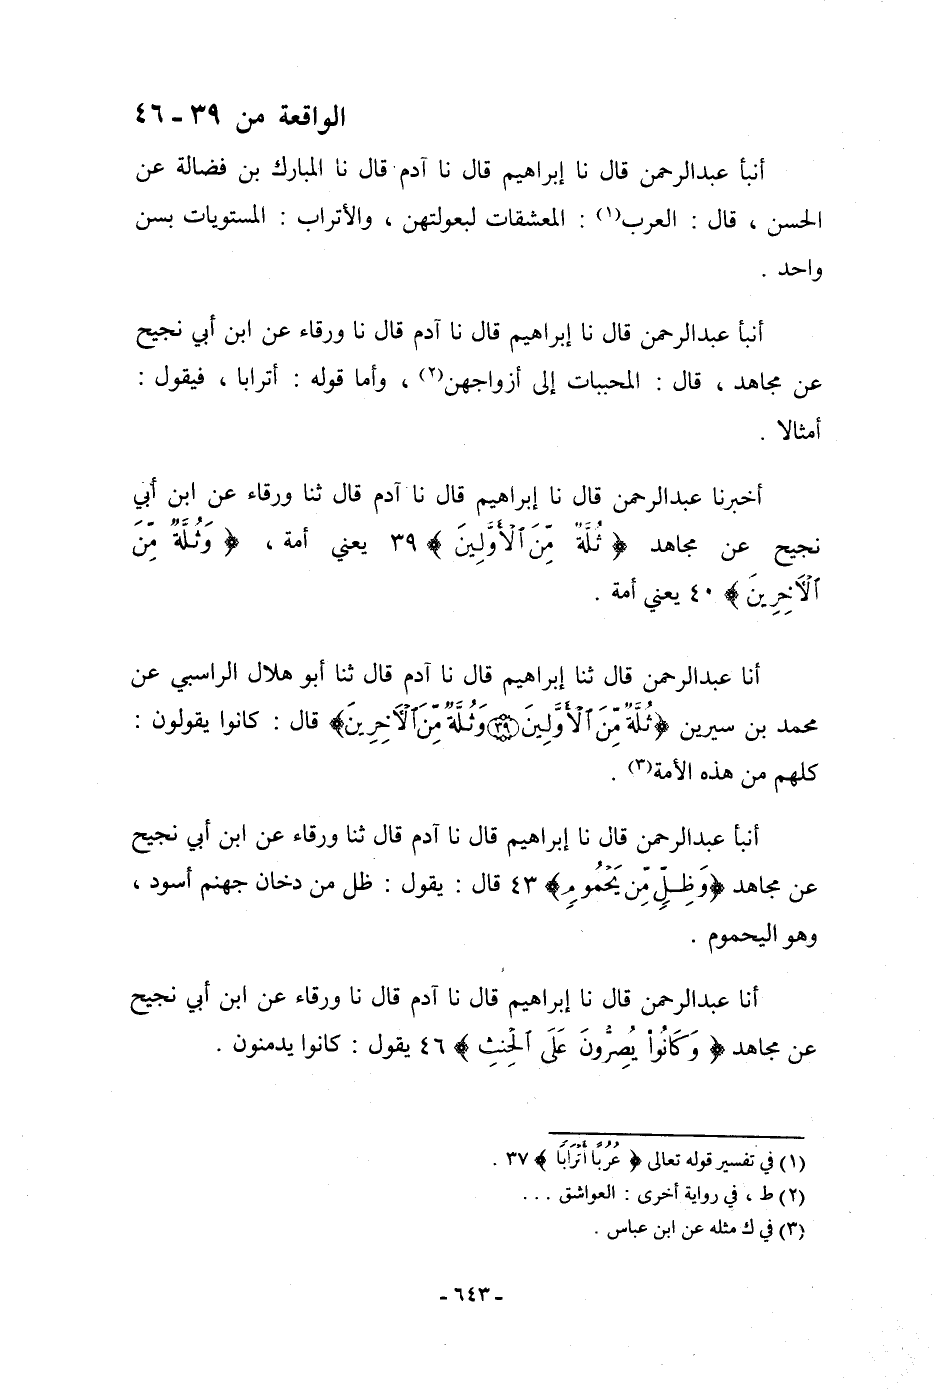 الواقعة من ٣٩ ـ ٤٦
أنبأ عبدالرحمن قال نا إبراهيم قال نا آدم قال نا المبارك بن فضالة عن
الحسن ، قال : العرب(١) : المعشقات لبعولتهن ، والأتراب : المستويات بسن
واحد .
أنبأ عبدالرحمن قال نا إبراهيم قال نا آدم قال نا ورقاء عن ابن أبي نجيح
عن مجاهد ، قال : المحببات إلى أزواجهن(٢) ، وأما قوله : أترابا ، فيقول :
أمثالا .
أخبرنا عبدالرحمن قال نا إبراهيم قال نا آدم قال ثنا ورقاء عن ابن أبي
نجيح عن مجاهد ﴿ ثُلَّةٌ مِّنَ ٱلْأَوَّلِينَ ﴾ ٣٩ يعني أمة ، ﴿ وَثُلَّةٌ مِّنَ
ٱلْآخِرِينَ ﴾ ٤٠ يعني أمة .
أنا عبدالرحمن قال ثنا إبراهيم قال نا آدم قال ثنا أبو هلال الراسبي عن
محمد بن سيرين ﴿ثُلَّةٌ مِّنَ ٱلْأَوَّلِينَ ۝٣٩ وَثُلَّةٌ مِّنَ ٱلْآخِرِينَ﴾ قال : كانوا يقولون :
كلهم من هذه الأمة(٣) .
أنبأ عبدالرحمن قال نا إبراهيم قال نا آدم قال ثنا ورقاء عن ابن أبي نجيح
عن مجاهد ﴿وَظِلٍّ مِّن يَحْمُومٍ﴾ ٤٣ قال : يقول : ظل من دخان جهنم أسود ،
وهو اليحموم .
أنا عبدالرحمن قال نا إبراهيم قال نا آدم قال نا ورقاء عن ابن أبي نجيح
عن مجاهد ﴿ وَكَانُوا۟ يُصِرُّونَ عَلَى ٱلْحِنثِ ﴾ ٤٦ يقول : كانوا يدمنون .
(١) في تفسير قوله تعالى ﴿ عُرُبًا أَتْرَابًا ﴾ ٣٧ .
(٢) ط ، في رواية أخرى : العواشق ...
(٣) في ك مثله عن ابن عباس .
ـ ٦٤٣ ـ